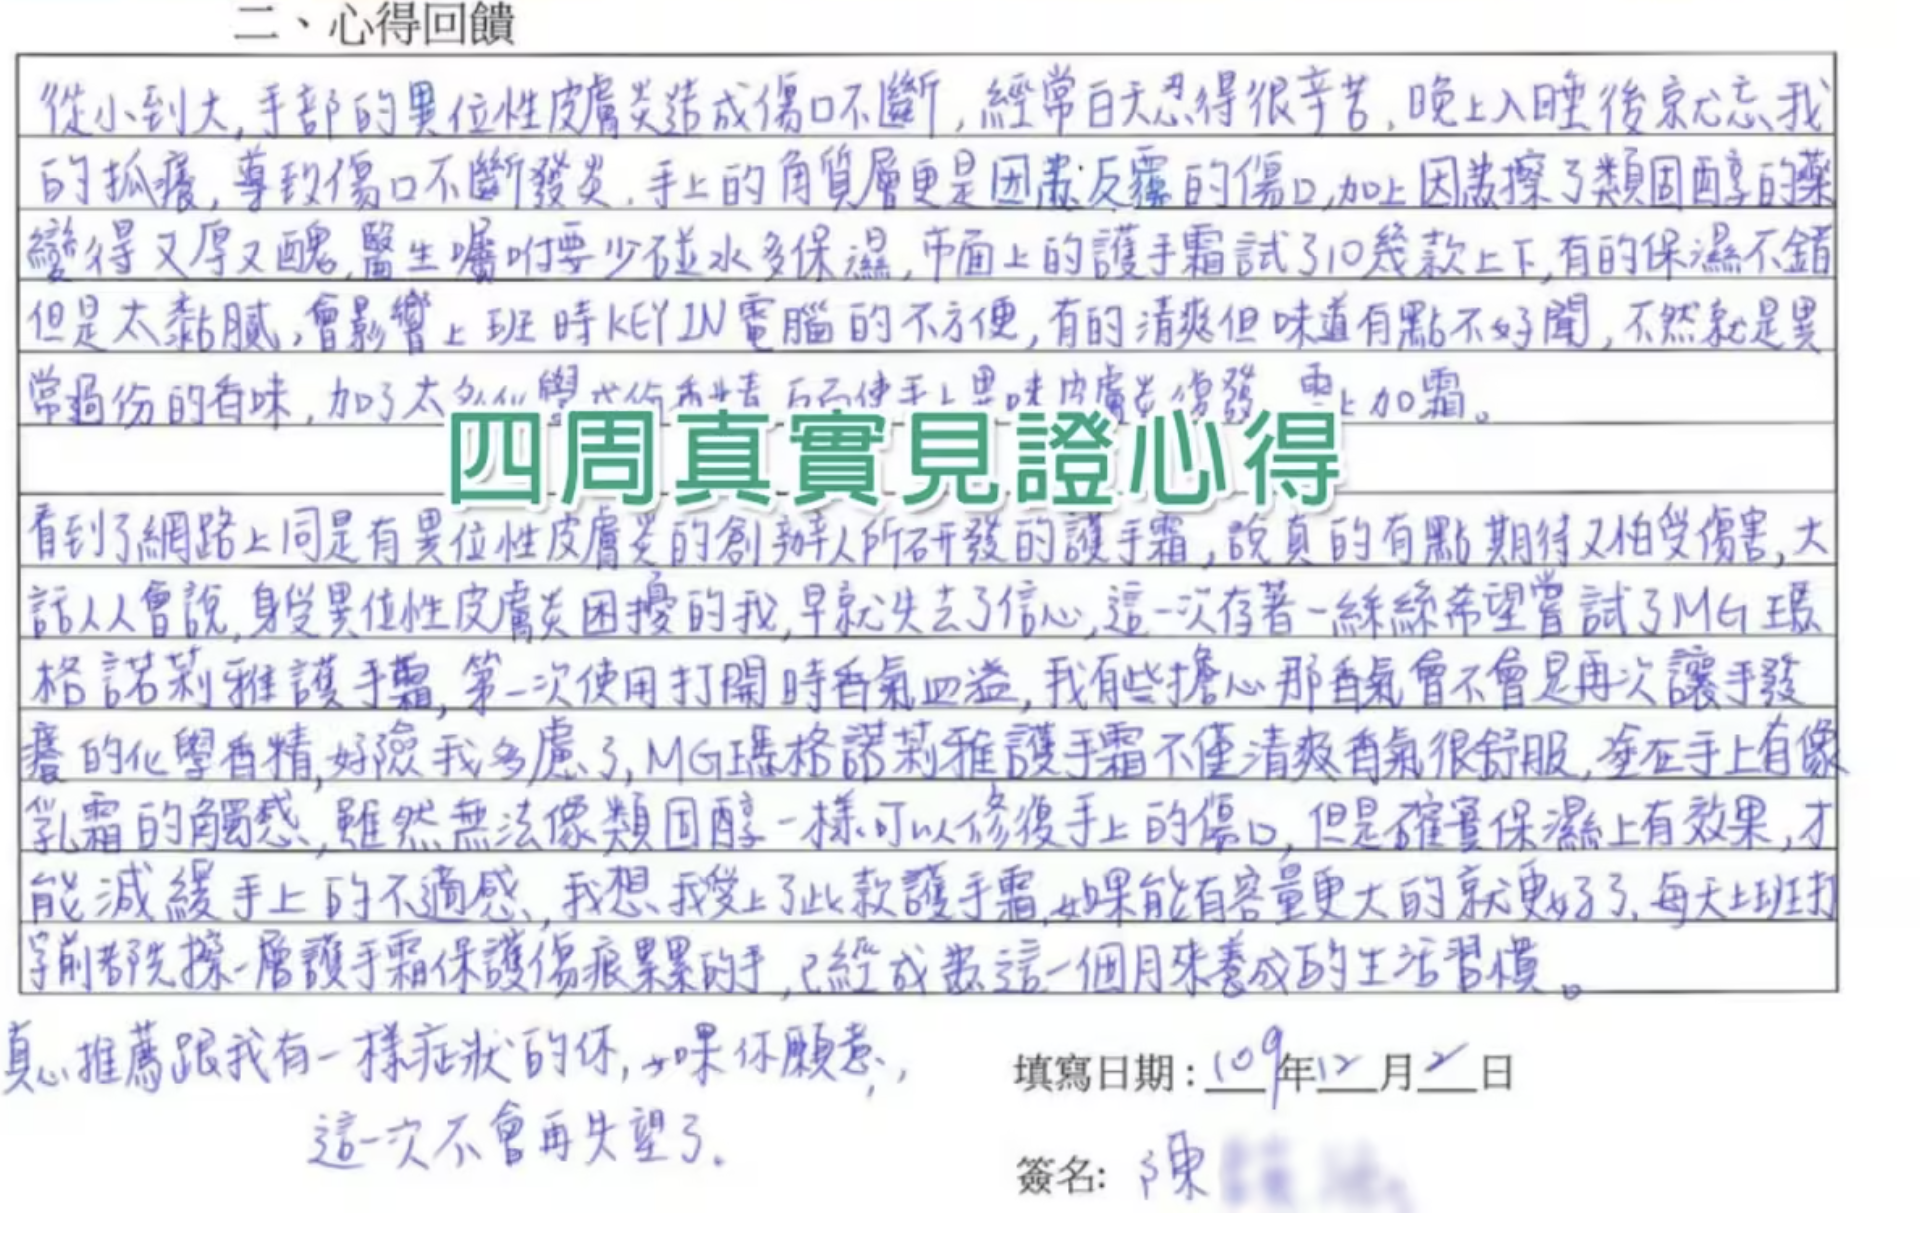 二、心得回饋
從小到大,手部的異位性皮膚炎造成傷口不斷,經常白天忍得很辛苦,晚上入睡後就忘我
的抓癢,導致傷口不斷發炎.手上的角質層更是因為反覆的傷口,加上因為擦了類固醇的藥
變得又厚又醜,醫生囑咐要少碰水多保濕,市面上的護手霜試了10幾款上下,有的保濕不錯
但是太黏膩,會影響上班時KEY IN電腦的不方便,有的清爽但味道有點不好聞,不然就是異
常過份的香味,加了太 上加霜。
四周真實見證心得
看到了網路上同是有異位性皮膚炎的創辦人所研發的護手霜,說真的有點期待又怕受傷害,大
話人人會說,身受異位性皮膚炎困擾的我,早就失去了信心,這一次存著一絲絲希望嘗試了MG瑪
格諾莉雅護手霜,第一次使用打開時香氣四溢,我有些擔心那香氣會不會是再次讓手發
癢的化學香精,好險我多慮了,MG瑪格諾莉雅護手霜不僅清爽香氣很舒服,塗在手上有像
乳霜的觸感,雖然無法像類固醇一樣可以修復手上的傷口,但是確實保濕上有效果,才
能減緩手上的不適感,我想我愛上了此款護手霜,如果能有容量更大的就更好了,每天上班打
字前都先擦一層護手霜保護傷痕累累的手,已經成為這一個月來養成的生活習慣。
真心推薦跟我有一樣症狀的你,如果你願意,
這一次不會再失望了.
填寫日期:109年12月2日
簽名:陳